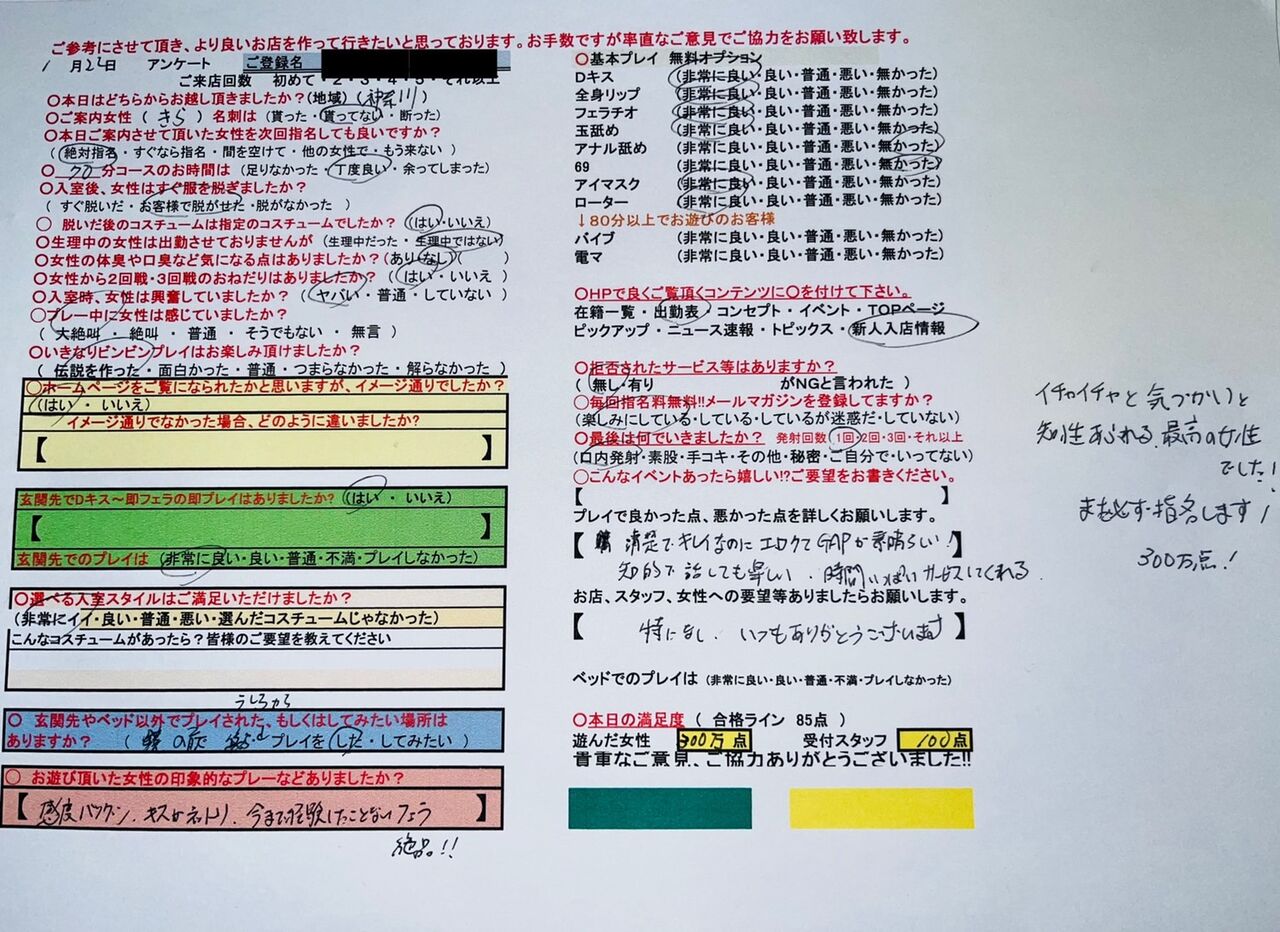 ご参考にさせて頂き、より良いお店を作って行きたいと思っております。お手数ですが率直なご意見でご協力をお願い致します。
1月26日 アンケート ご登録名
ご来店回数 初めて・2・3・4・5・それ以上
〇本日はどちらからお越し頂きましたか?(地域)(神奈川)
〇ご案内女性(きら)名刺は(貰った・貰ってない・断った)
〇本日ご案内させて頂いた女性を次回指名しても良いですか?
(絶対指名・すぐなら指名・間を空けて・他の女性で・もう来ない)
〇 70分コースのお時間は(足りなかった・丁度良い・余ってしまった)
〇入室後、女性はすぐ服を脱ぎましたか?
(すぐ脱いだ・お客様で脱がせた・脱がなかった)
〇 脱いだ後のコスチュームは指定のコスチュームでしたか?(はい・いいえ)
〇生理中の女性は出勤させておりませんが(生理中だった・生理中ではない)
〇女性の体臭や口臭など気になる点はありましたか?(あり・なし)( )
〇女性から2回戦・3回戦のおねだりはありましたか?(はい・いいえ)
〇入室時、女性は興奮していましたか?(ヤバい・普通・していない)
〇プレー中に女性は感じていましたか?
(大絶叫・絶叫・普通・そうでもない・無言)
〇いきなりビンビンプレイはお楽しみ頂けましたか?
(伝説を作った・面白かった・普通・つまらなかった・解らなかった)
〇ホームページをご覧になられたかと思いますが、イメージ通りでしたか?
(はい・いいえ)
イメージ通りでなかった場合、どのように違いましたか?
【 】
玄関先でDキス～即フェラの即プレイはありましたか?(はい・いいえ)
【 】
玄関先でのプレイは(非常に良い・良い・普通・不満・プレイしなかった)
〇選べる入室スタイルはご満足いただけましたか?
(非常にイイ・良い・普通・悪い・選んだコスチュームじゃなかった)
こんなコスチュームがあったら?皆様のご要望を教えてください
うしろから
〇 玄関先やベッド以外でプレイされた、もしくはしてみたい場所は
ありますか?( の前 プレイをした・してみたい)
〇 お遊び頂いた女性の印象的なプレーなどありましたか?
【感度バツグン、キスがネットリ、今まで経験したことないフェラ】
絶品!!
〇基本プレイ 無料オプション
Dキス (非常に良い・良い・普通・悪い・無かった)
全身リップ (非常に良い・良い・普通・悪い・無かった)
フェラチオ (非常に良い・良い・普通・悪い・無かった)
玉舐め (非常に良い・良い・普通・悪い・無かった)
アナル舐め (非常に良い・良い・普通・悪い・無かった)
69 (非常に良い・良い・普通・悪い・無かった)
アイマスク (非常に良い・良い・普通・悪い・無かった)
ローター (非常に良い・良い・普通・悪い・無かった)
↓80分以上でお遊びのお客様
バイブ (非常に良い・良い・普通・悪い・無かった)
電マ (非常に良い・良い・普通・悪い・無かった)
〇HPで良くご覧頂くコンテンツに〇を付けて下さい。
在籍一覧・出勤表・コンセプト・イベント・TOPページ
ピックアップ・ニュース速報・トピックス・新人入店情報
〇拒否されたサービス等はありますか?
(無し・有り がNGと言われた)
〇毎回指名料無料!!メールマガジンを登録してますか?
(楽しみにしている・している・しているが迷惑だ・していない)
〇最後は何でいきましたか? 発射回数 1回・2回・3回・それ以上
(口内発射・素股・手コキ・その他・秘密・ご自分で・いってない)
〇こんなイベントあったら嬉しい!?ご要望をお書きください。
【 】
プレイで良かった点、悪かった点を詳しくお願いします。
【清楚でキレイなのにエロくてGAPが素晴らしい!】
知的で話しても楽しい、時間いっぱいサービスしてくれる.
お店、スタッフ、女性への要望等ありましたらお願いします。
【特になし.いつもありがとうございます】
ベッドでのプレイは(非常に良い・良い・普通・不満・プレイしなかった)
〇本日の満足度(合格ライン 85点)
遊んだ女性 300万点 受付スタッフ 100点
貴重なご意見、ご協力ありがとうございました!!
イチャイチャと気づかいと
知性あふれる、最高の女性
でした!
また必ず指名します!
300万点!